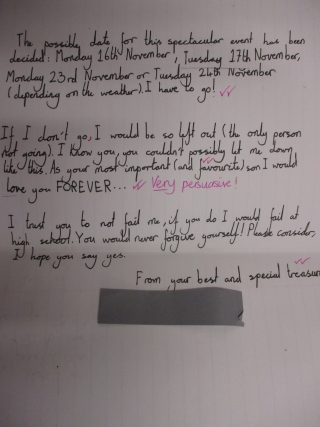 The possibly date for this spectacular event has been
decided: Monday 16th November, Tuesday 17th November,
Monday 23rd November or Tuesday 24th November
(depending on the weather). I have to go!
If I don't go, I would be so left out (the only person
not going). I know you, you couldn't possibly let me down
like this. As your most important (and favourite) son I would
love you FOREVER... Very persuasive!
I trust you to not fail me, if you do I would fail at
high school. You would never forgive yourself! Please consider,
I hope you say yes.
From your best and special treasure